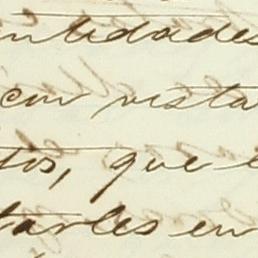 ntidades
con vista
tos, que e
tarles en